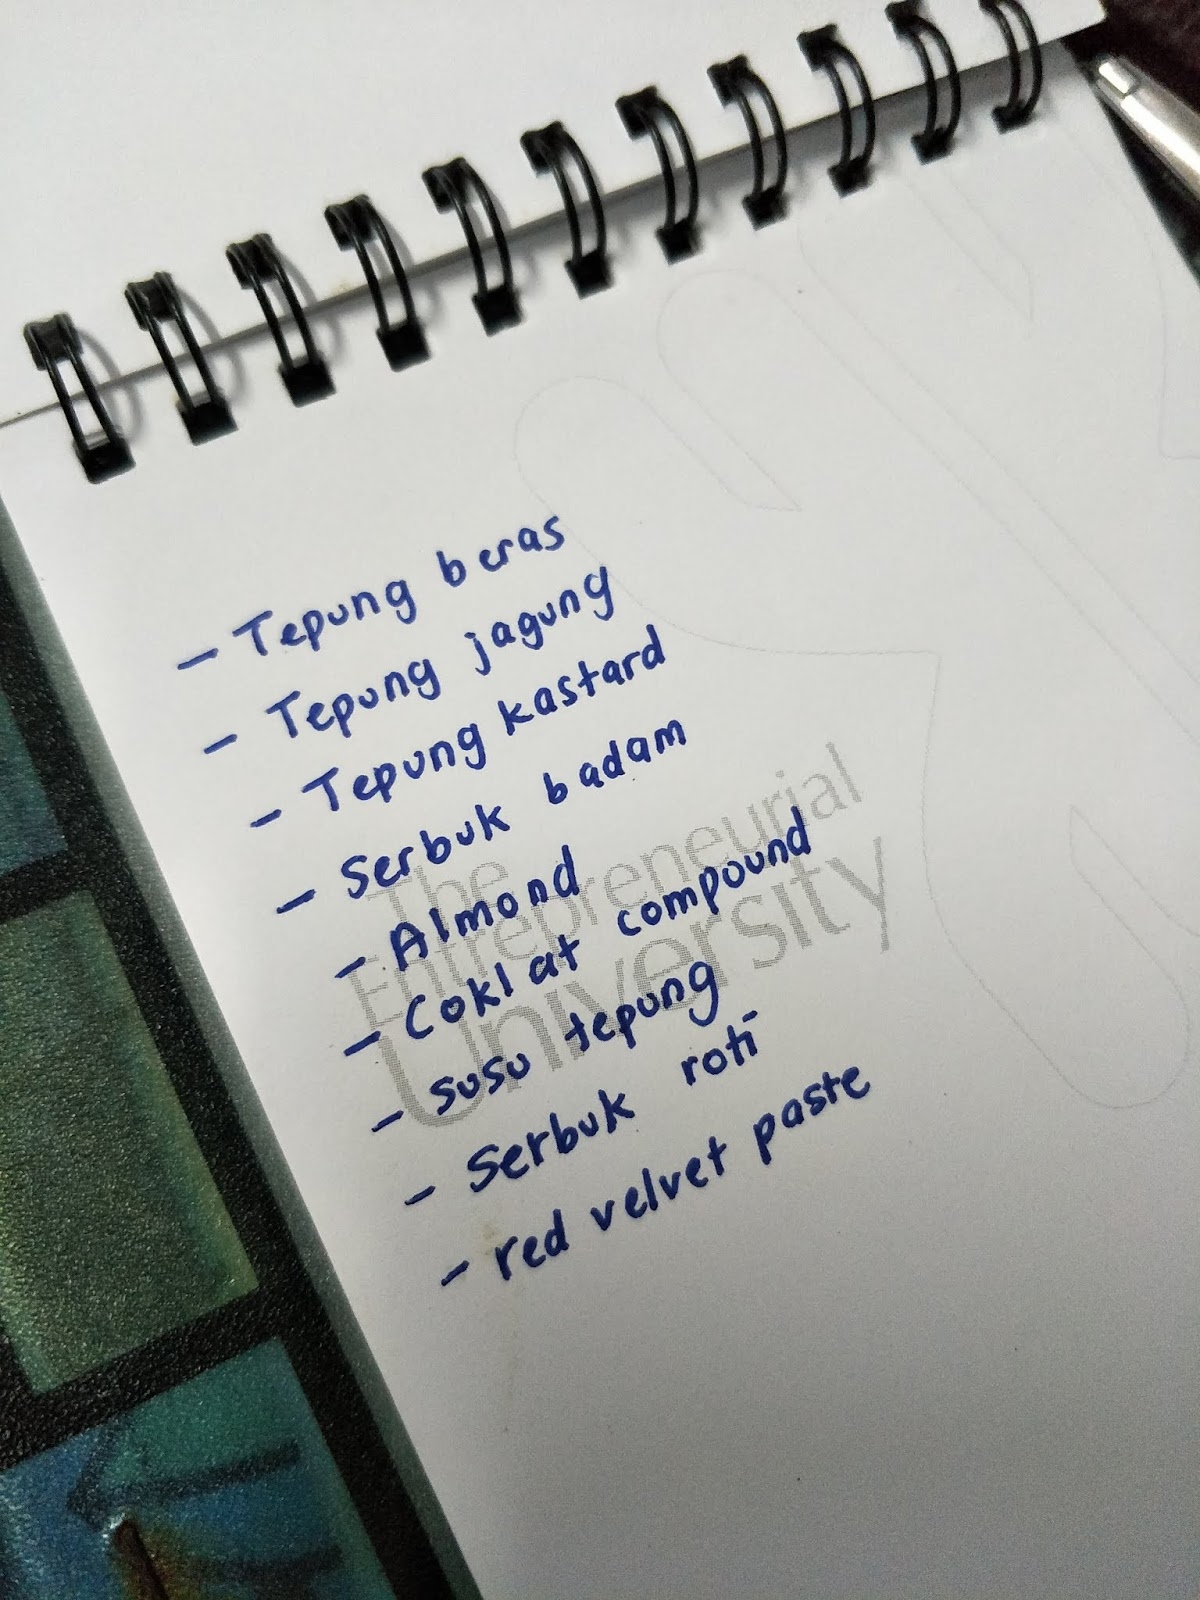 - Tepung beras
- Tepung jagung
- Tepung kastard
- Serbuk badam
- Almond
- Coklat compound
- susu tepung
- Serbuk roti
- red velvet paste
The
Entrepreneurial
University